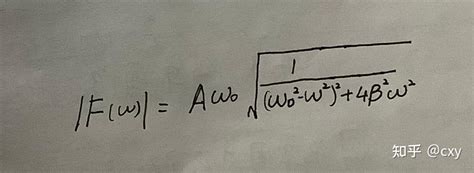 |F(ω)| = Aω₀ √(1/((ω₀²-ω²)²+4β²ω²))
知乎 @cxy